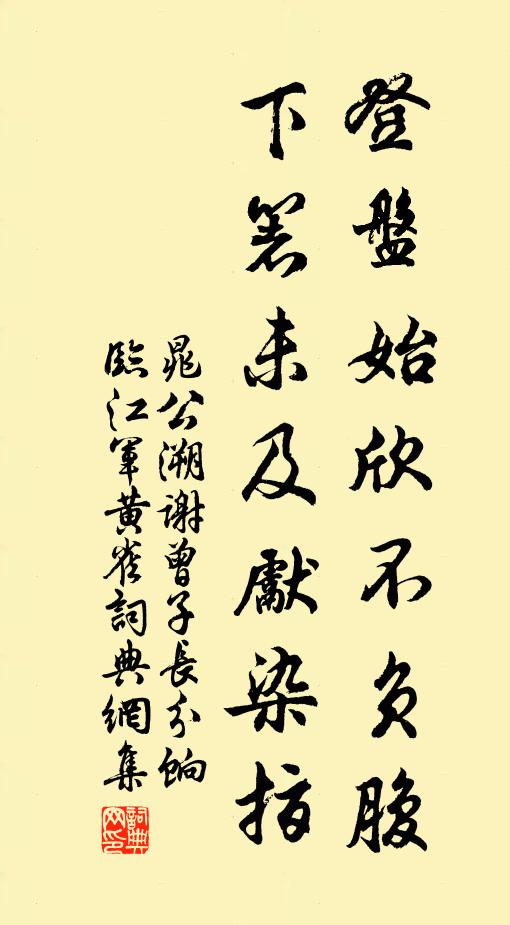 登盤始欣不負腹
下箸未及獻染指
晁公溯謝曾子長分餉
臨江軍黃雀詞典網集
詞典網印